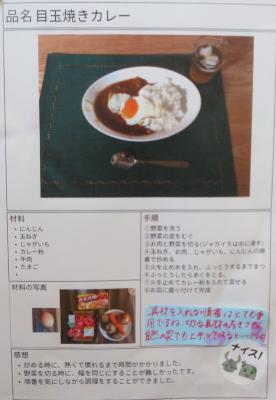 品名 目玉焼きカレー
材料
• にんじん
• 玉ねぎ
• じゃがいも
• カレー粉
• 牛肉
• たまご
•
材料の写真
手順
①野菜を洗う
②野菜の皮をむく
③お肉と野菜を切る(ジャガイモは水に浸す)
④玉ねぎ、お肉、じゃがいも、にんじんの順番で炒める
⑤火を止め水を入れ、ふっとうするまでまつ
⑥ふっとうしたらあくをとる。
⑦火を止めてカレー粉を入れて混ぜる
⑧お皿に盛り付けて完成
感想
• 炒める時に、熱くて慣れるまで時間がかかりました。
• 野菜を切る時に、幅を同じにすることが難しかったです。
• 順番を気にしながら調理をすることができました。
具材を入れる順番はとても重
要ですね。切る具材の大きさも
ナイス！